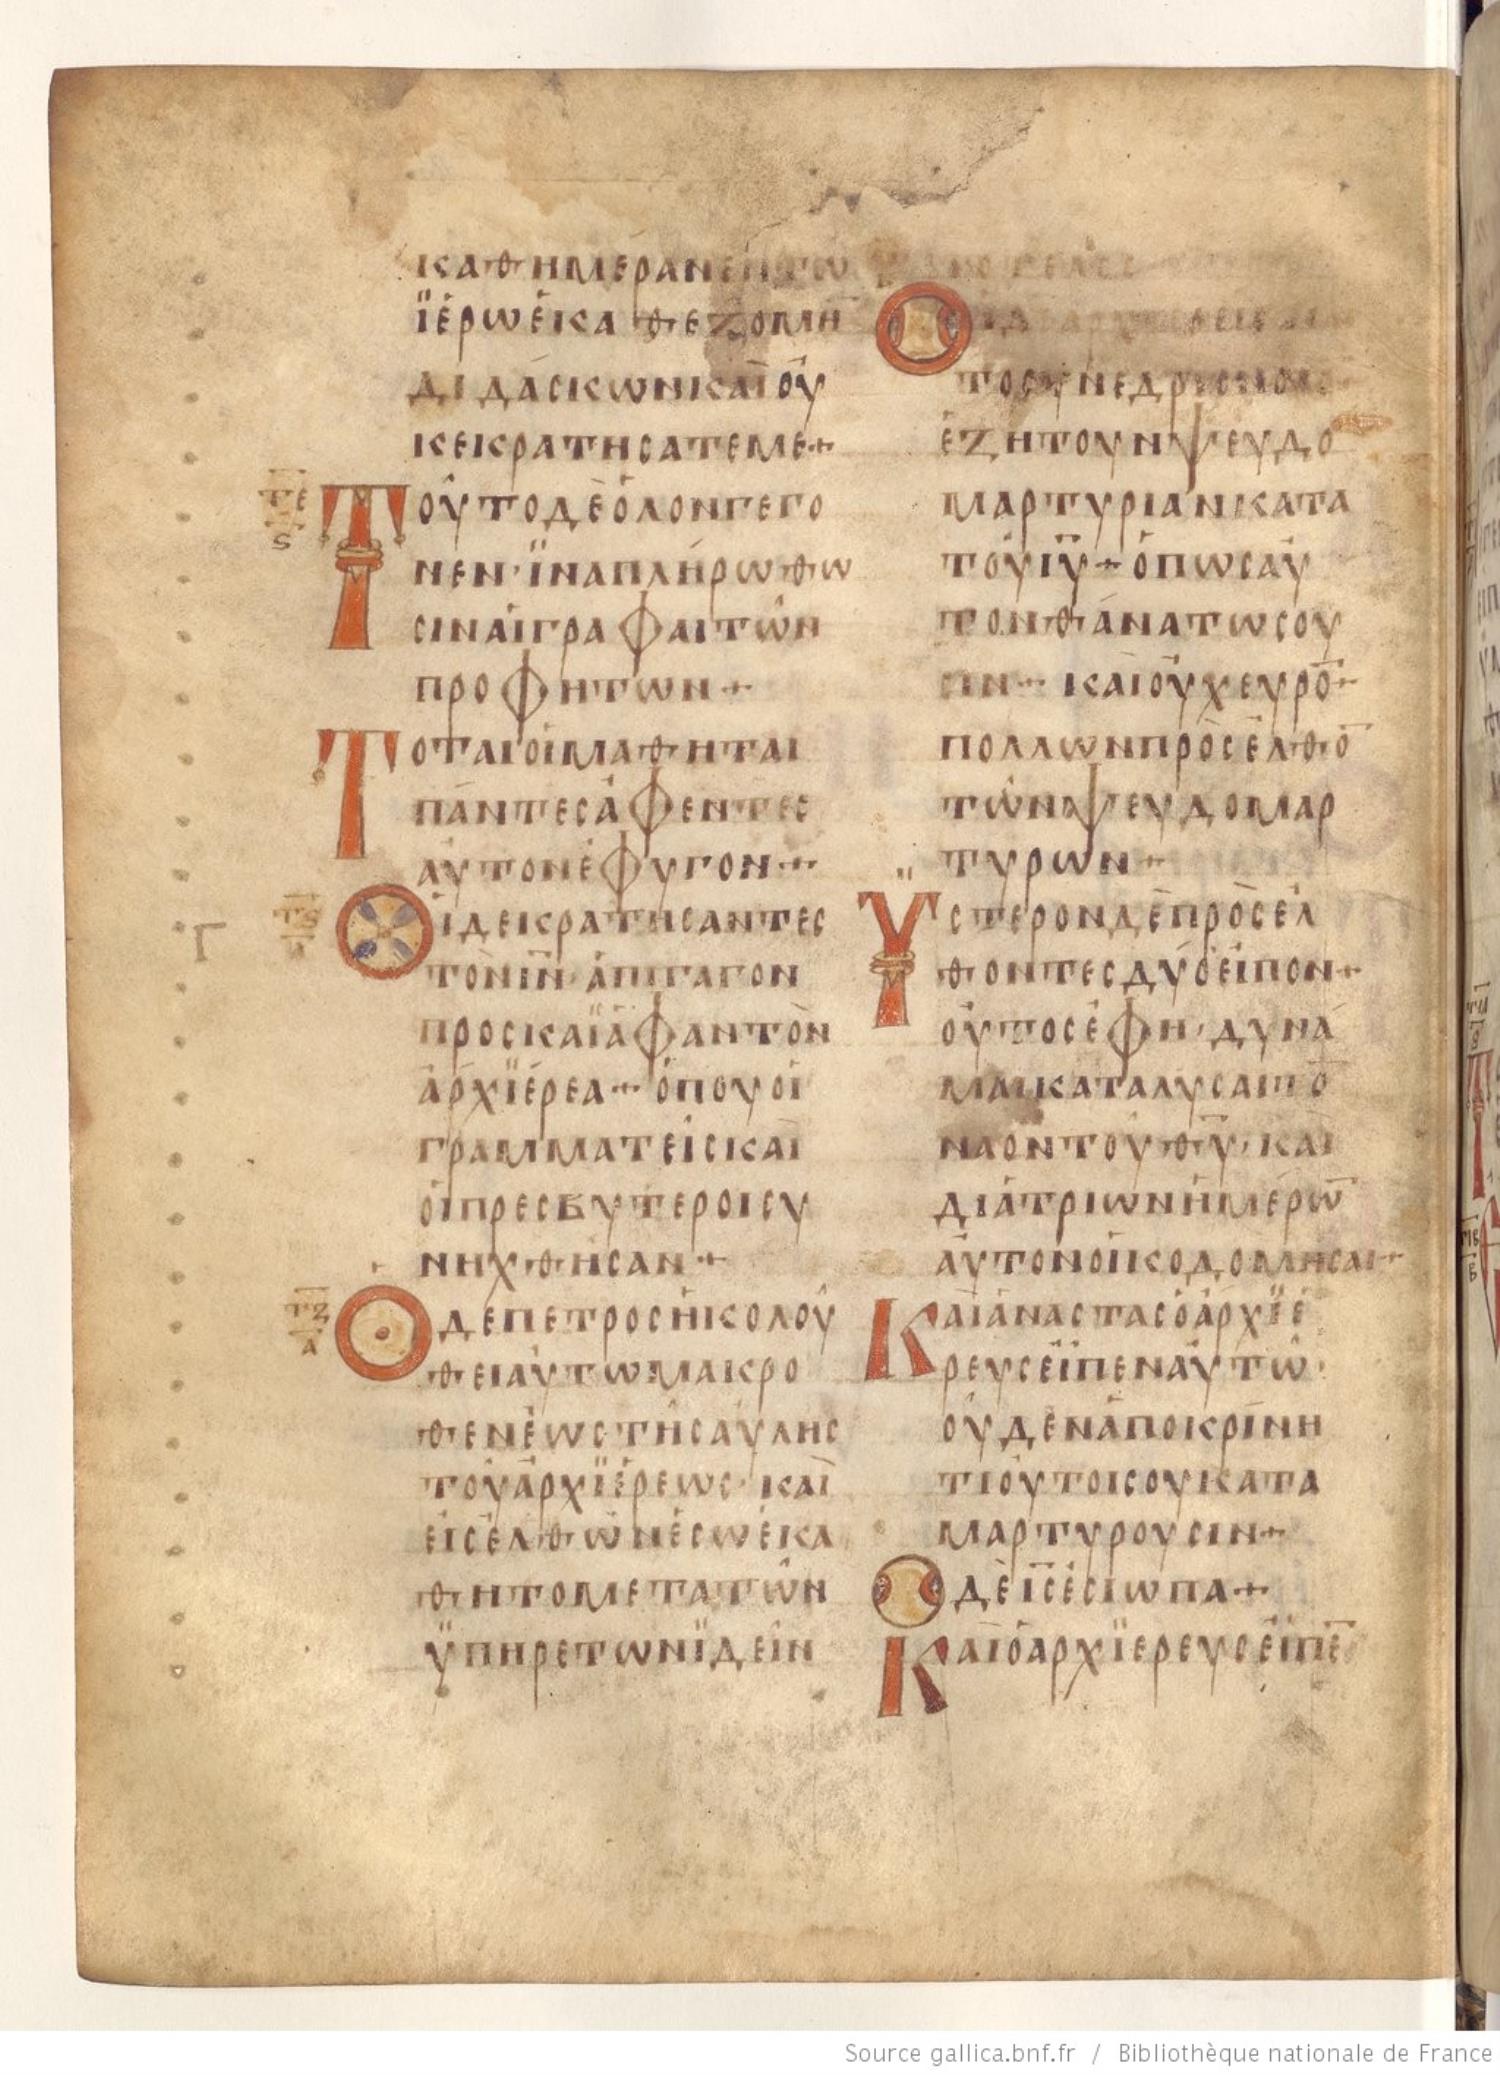 ΚΑΘΗΜΕΡΑΝΕΝΤΩ
ΪΕΡΩΕΚΑΘΕΖΟΜΗ̅
ΔΙΔΑΣΚΩΝΚΑΙΟΥ
ΚΕΚΡΑΤΗСΑΤΕΜΕ+
ΤΕ
Ϛ
ΤΟΥΤΟΔΕΟΛΟΝΓΕΓΟ
ΝΕΝ·ΪΝΑΠΛΗΡΩΘΩ
СΙΝΑΙΓΡΑΦΑΙΤΩΝ
ΠΡΟΦΗΤΩΝ+
ΤΟΤΑΙΟΙΜΑΘΗΤΑΙ
ΠΑΝΤΕСΑΦΕΝΤΕС
ΑΥΤΟΝΕΦΥΓΟΝ+
Γ
ΟΙΔΕΚΡΑΤΗСΑΝΤΕС
ΤΟΝΙΝ̅·ΑΠΙΓΑΓΟΝ
ΠΡΟСΚΑΪΑΦΑΝΤΟΝ
ΑΡΧΪΕΡΕΑ+ΟΠΟΥΟΙ
ΓΡΑΜΜΑΤΕΙСΚΑΙ
ΟΙΠΡΕСΒΥΤΕΡΟΙСΥ
ΝΗΧΘΗСΑΝ+
ΤΖ
Α
ΟΔΕΠΕΤΡΟСΗΚΟΛΟΥ
ΘΕΙΑΥΤΩΜΑΚΡΟ
ΘΕΝΕΩСΤΗСΑΥΛΗС
ΤΟΥΑΡΧΪΕΡΕΩС·ΚΑΙ
ΕΙСΕΛΘΩΝΕСΩΕΚΑ
ΘΗΤΟΜΕΤΑΤΩΝ
ΫΠΗΡΕΤΩΝΪΔΕΙΝ
ΤΟСΥΝΕΔΡΙΟΝ
ΕΖΗΤΟΥΝΨΕΥΔΟ
ΜΑΡΤΥΡΙΑΝΚΑΤΑ
ΤΟΥΙΥ̅+ΟΠΩСΑΥ
ΤΟΝΘΑΝΑΤΩСΟΥ
СΙΝ+ΚΑΙΟΥΧΕΥΡΟ̅+
ΠΟΛΛΩΝΠΡΟСΕΛΘΟ̅
ΤΩΝΨΕΥΔΟΜΑΡ
ΤΥΡΩΝ+
ΫСΤΕΡΟΝΔΕΠΡΟСΕΛ
ΘΟΝΤΕСΔΥΟΕΙΠΟΝ+
ΟΥΤΟСΕΦΗ·ΔΥΝΑ
ΜΑΙΚΑΤΑΛΥСΑΙΤΟ̅
ΝΑΟΝΤΟΥΘΥ̅·ΚΑΙ
ΔΙΑΤΡΙΩΝΗΜΕΡΩ̅
ΑΥΤΟΝΟΙΚΟΔΟΜΗСΑΙ+
ΚΑΙΑΝΑСΤΑСΟΑΡΧΪΕ
ΡΕΥСΕΙΠΕΝΑΥΤΩ·
ΟΥΔΕΝΑΠΟΚΡΙΝΗ
ΤΙΟΥΤΟΙСΟΥΚΑΤΑ
ΜΑΡΤΥΡΟΥСΙΝ+
ΟΔΕΙС̅ΕСΙΩΠΑ+
ΚΑΙΟΑΡΧΪΕΡΕΥСΕΙΠΕ̅
Source gallica.bnf.fr / Bibliothèque nationale de France